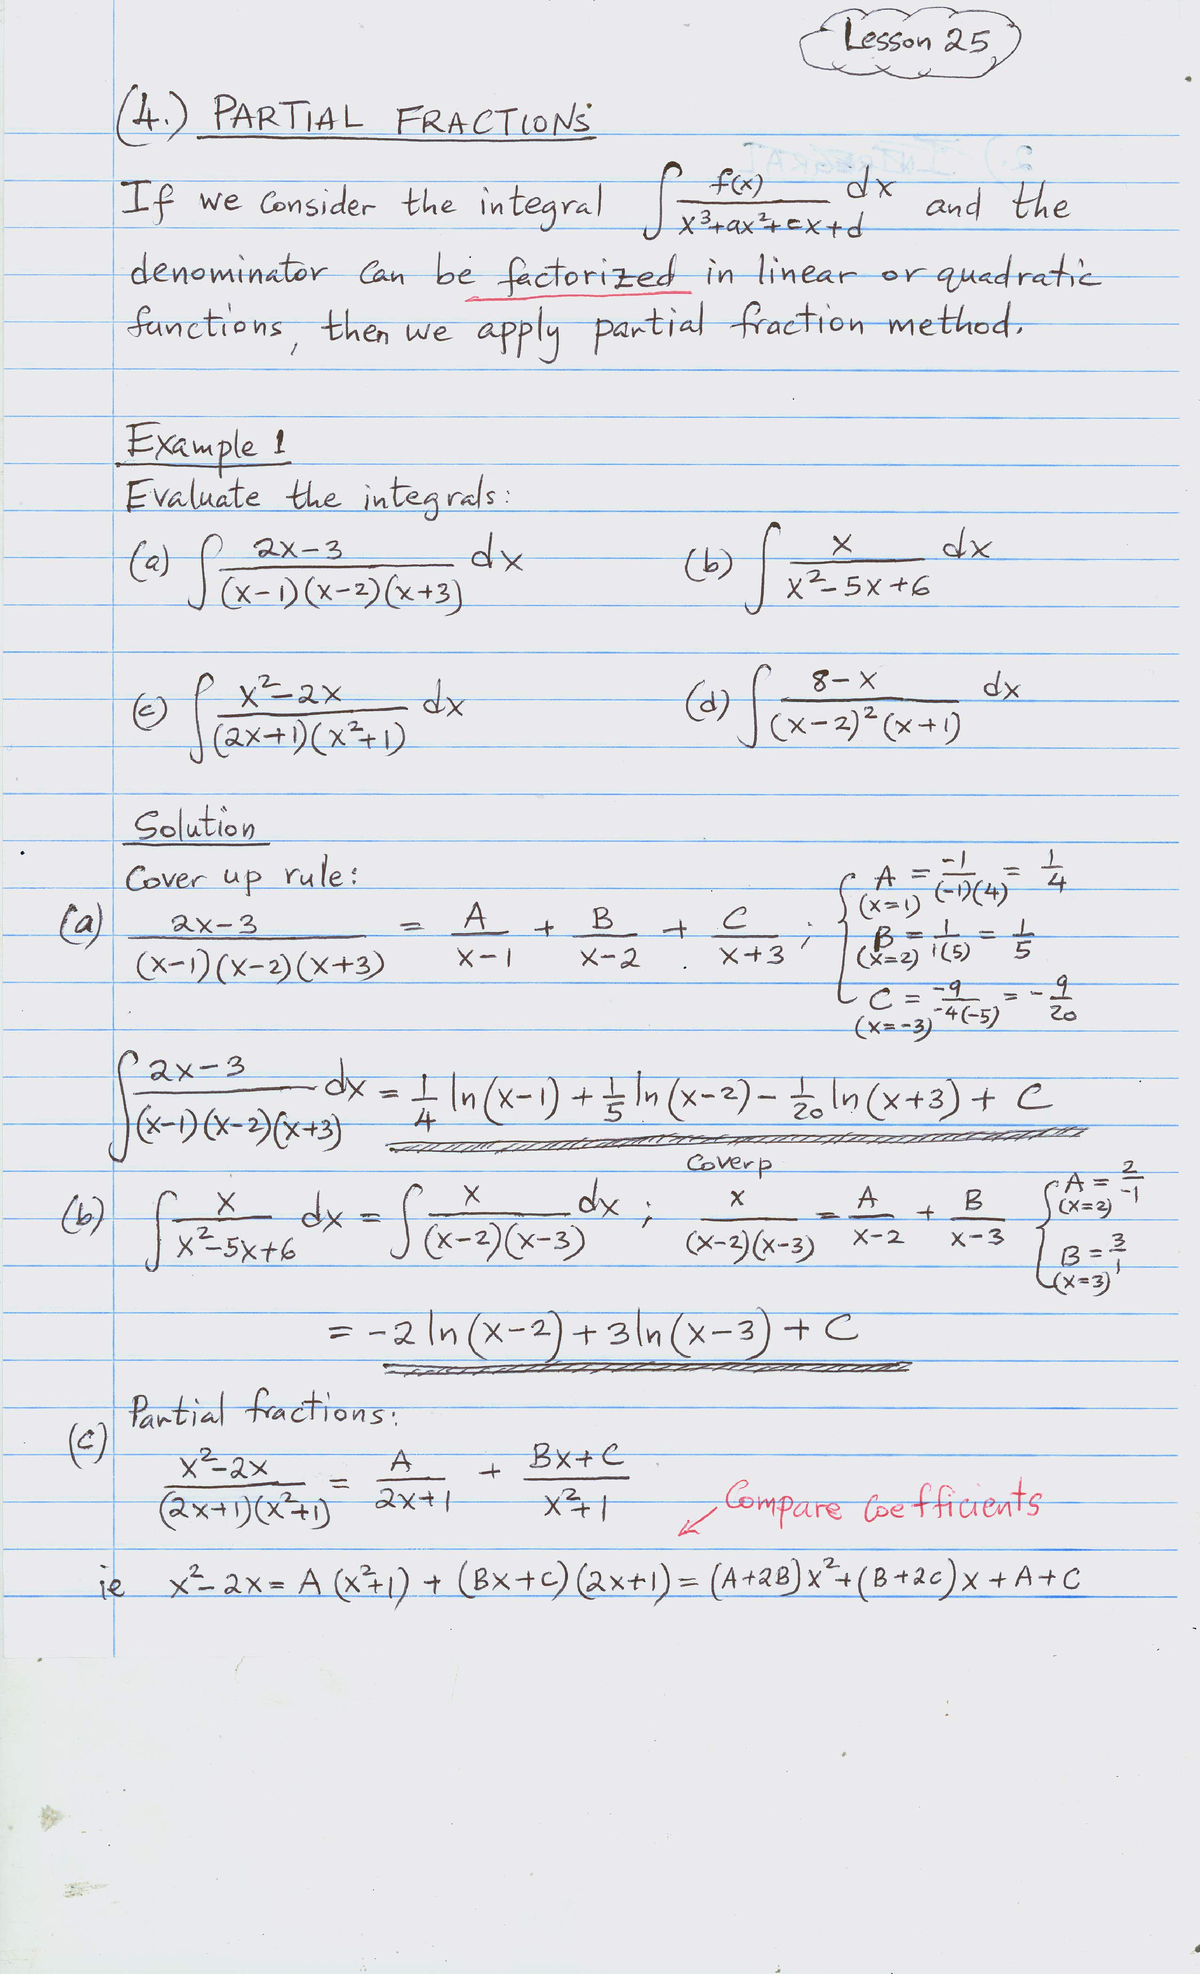 Lesson 25
(4.) PARTIAL FRACTIONS
If we consider the integral ∫ f(x)/(x³+ax²+cx+d) dx and the
denominator can be factorized in linear or quadratic
functions, then we apply partial fraction method.
Example 1
Evaluate the integrals:
(a) ∫ (2x-3)/((x-1)(x-2)(x+3)) dx (b) ∫ x/(x²-5x+6) dx
(c) ∫ (x²-2x)/((2x+1)(x²+1)) dx (d) ∫ (8-x)/((x-2)²(x+1)) dx
Solution
Cover up rule:
(a) (2x-3)/((x-1)(x-2)(x+3)) = A/(x-1) + B/(x-2) + C/(x+3) ;
A = -1/((-1)(4)) = 1/4
(x=1)
B = 1/(1(5)) = 1/5
(x=2)
C = -9/(-4(-5)) = -9/20
(x=-3)
∫ (2x-3)/((x-1)(x-2)(x+3)) dx = 1/4 ln(x-1) + 1/5 ln(x-2) - 1/20 ln(x+3) + C
Coverp
(b) ∫ x/(x²-5x+6) dx = ∫ x/((x-2)(x-3)) dx ; x/((x-2)(x-3)) = A/(x-2) + B/(x-3)
A = 2/-1
(x=2)
B = 3/1
(x=3)
= -2 ln(x-2) + 3 ln(x-3) + C
Partial fractions:
(c) (x²-2x)/((2x+1)(x²+1)) = A/(2x+1) + (Bx+C)/(x²+1)
Compare coefficients
ie x²-2x = A(x²+1) + (Bx+C)(2x+1) = (A+2B)x²+(B+2C)x + A+C